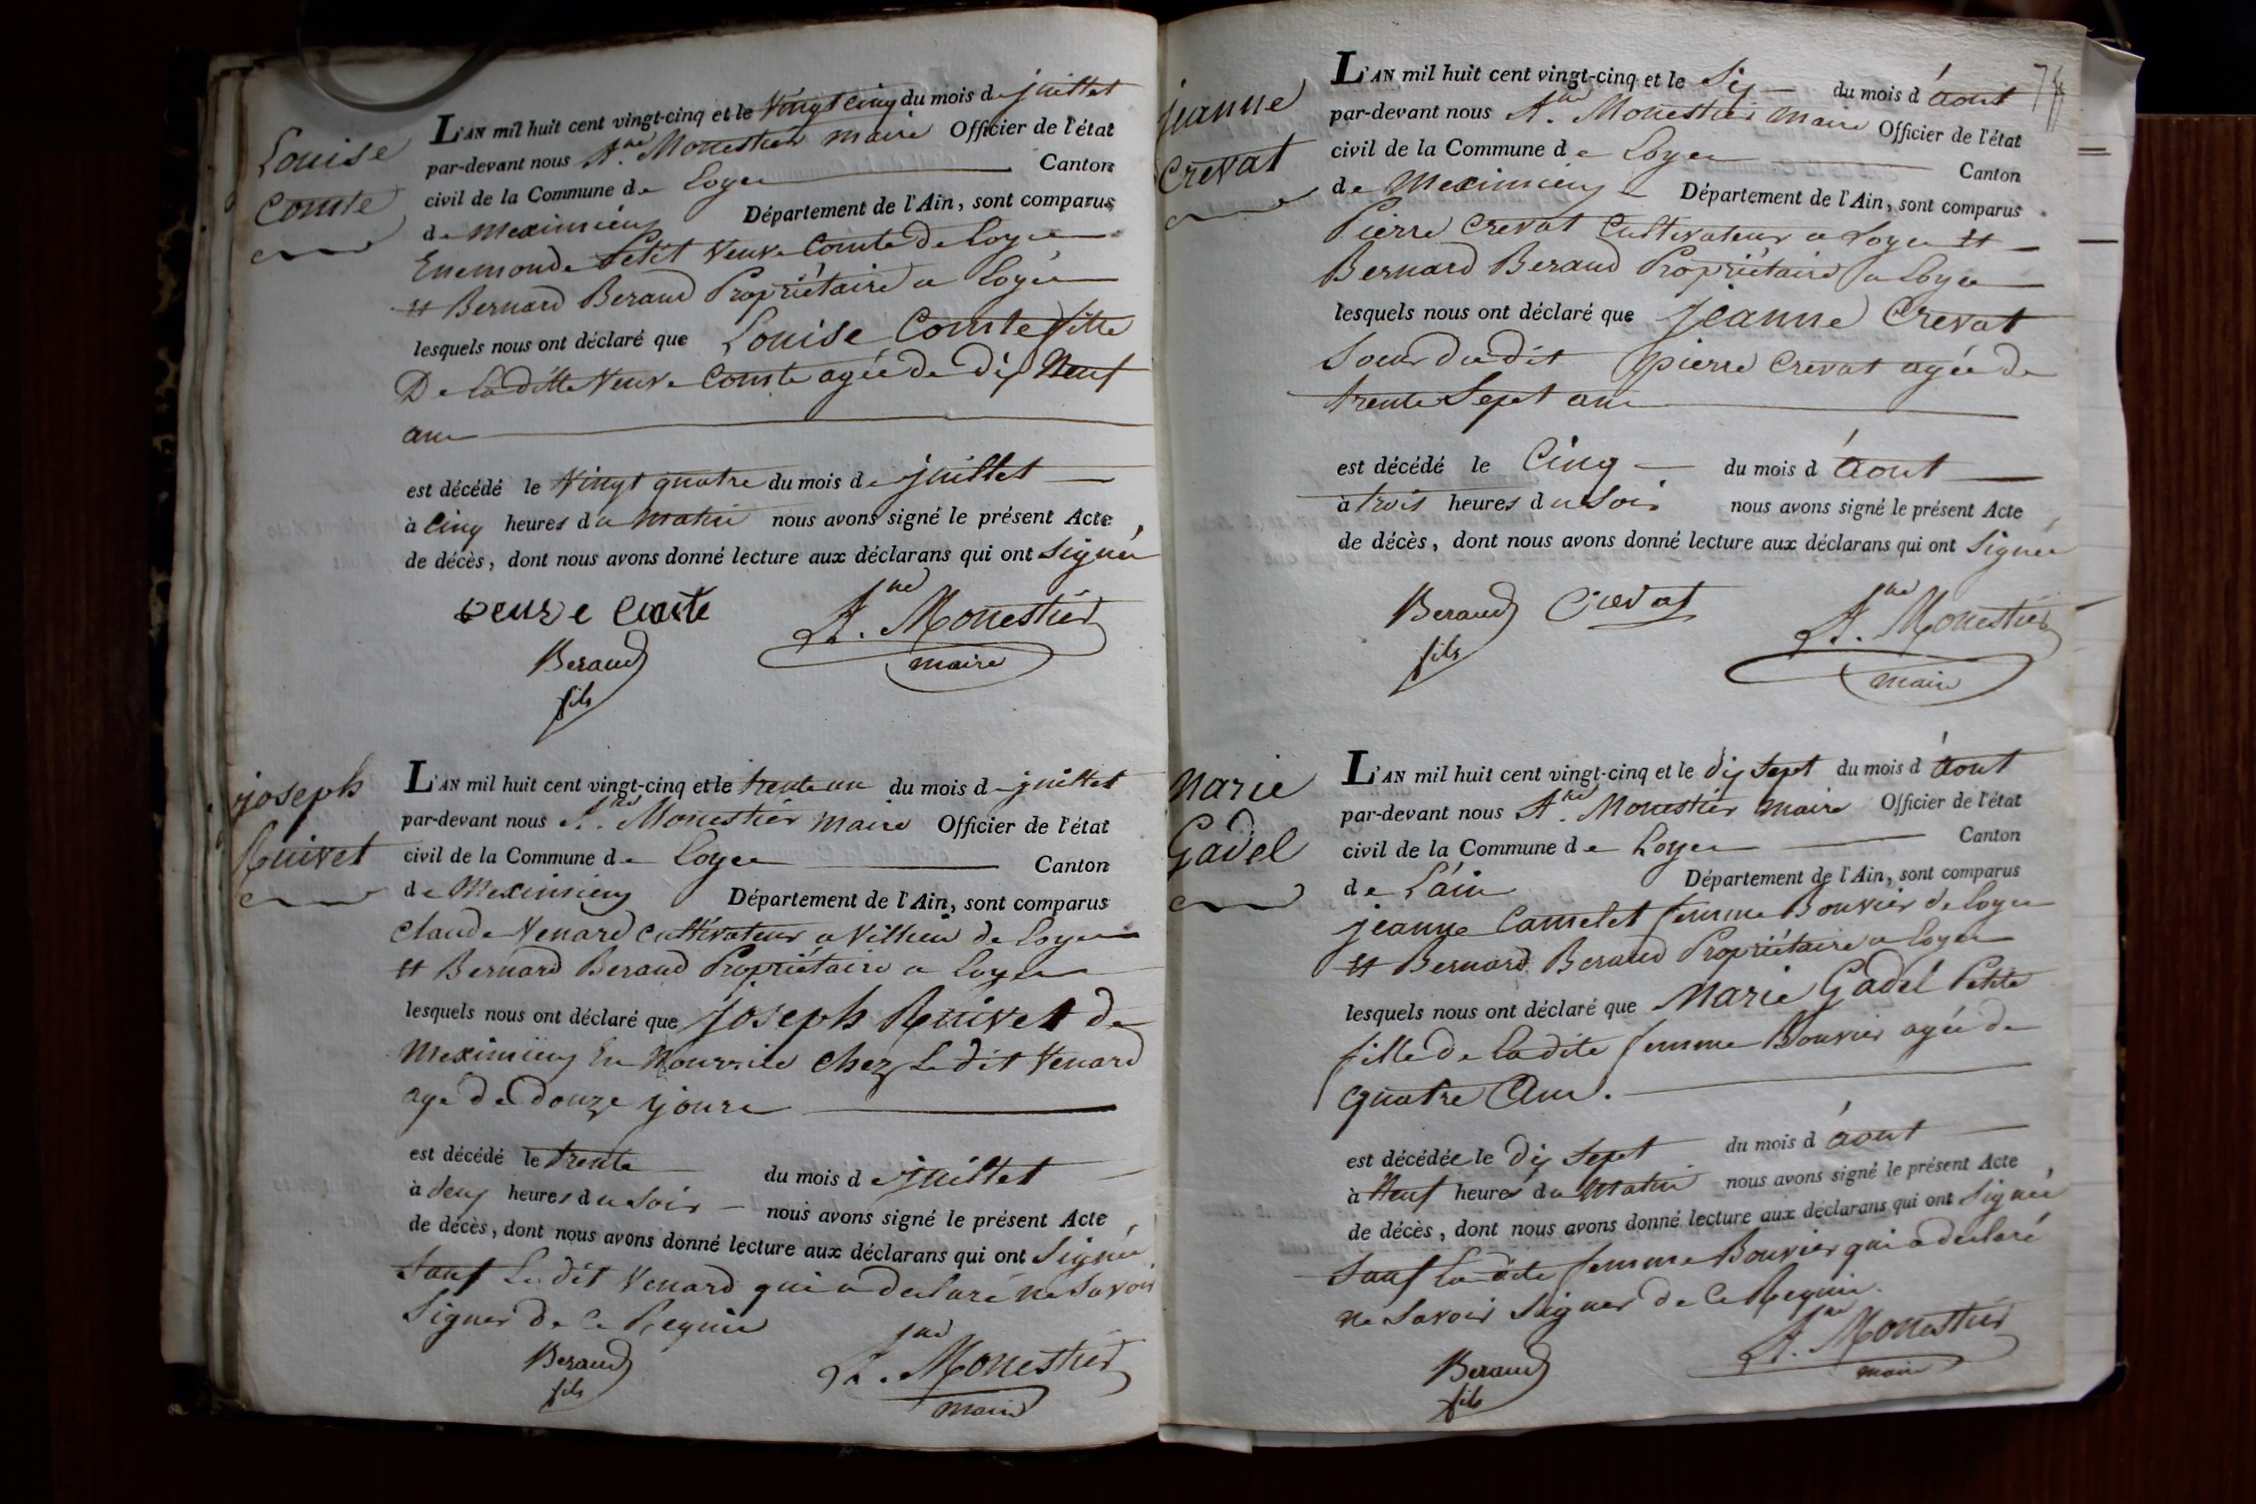 Louise
Comte
L'AN mil huit cent vingt-cinq et le vingt cinq du mois de juillet
par-devant nous A.ne Monestier maire Officier de l'état
civil de la Commune de Loyes Canton
de Meximieux Département de l'Ain, sont comparus
Enemonde Petit veuve Comte de Loyes
et Bernard Beraud Propriétaire a Loyes
lesquels nous ont déclaré que Louise Comte fille
De la ditte veuve Comte agée de dix neuf
ans
est décédé le vingt quatre du mois de juillet
à cinq heures du matin nous avons signé le présent Acte
de décès, dont nous avons donné lecture aux déclarans qui ont signés
veuve Comte
A.ne Monestier
maire
Beraud
fils
joseph
Ruivet
L'AN mil huit cent vingt-cinq et le trente un du mois de juillet
par-devant nous A.ne Monestier maire Officier de l'état
civil de la Commune de Loyes Canton
de Meximieux Département de l'Ain, sont comparus
claude Venard cultivateur a Villieu de Loyes
et Bernard Beraud Propriétaire a Loyes
lesquels nous ont déclaré que joseph Ruivet de
Meximieux En Nourrice chez Le dit Venard
age de douze jours
est décédé le trente du mois de juillet
à deux heures du soir nous avons signé le présent Acte
de décès, dont nous avons donné lecture aux déclarans qui ont signés
sauf Le dit Venard qui a declaré ne savoir
signer de ce Requis
Beraud
fils
A.ne Monestier
maire
jeanne
Crevat
L'AN mil huit cent vingt-cinq et le six du mois d'aout
par-devant nous A.ne Monestier maire Officier de l'état
civil de la Commune de Loyes Canton
de Meximieux Département de l'Ain, sont comparus
Pierre Crevat cultivateur a Loyes et
Bernard Beraud Propriétaire a Loyes
lesquels nous ont déclaré que jeanne Crevat
soeur du dit pierre Crevat agée de
trente sept ans
est décédé le cinq du mois d'aout
à trois heures du soir nous avons signé le présent Acte
de décès, dont nous avons donné lecture aux déclarans qui ont signés
Beraud
fils
Crevat
A.ne Monestier
maire
Marie
Gadel
L'AN mil huit cent vingt-cinq et le dix sept du mois d'aout
par-devant nous A.ne Monestier maire Officier de l'état
civil de la Commune de Loyes Canton
de L'ain Département de l'Ain, sont comparus
jeanne Camelet femme Bouvier de Loyes
et Bernard Beraud Propriétaire a Loyes
lesquels nous ont déclaré que Marie Gadel Petite
fille de la dite femme Bouvier agée de
quatre Ans.
est décédée le dix sept du mois d'aout
à neuf heures du matin nous avons signé le présent Acte
de décès, dont nous avons donné lecture aux déclarans qui ont signés
sauf la dite femme Bouvier qui a declaré
ne savoir signer de ce Requis.
Beraud
fils
A.ne Monestier
maire